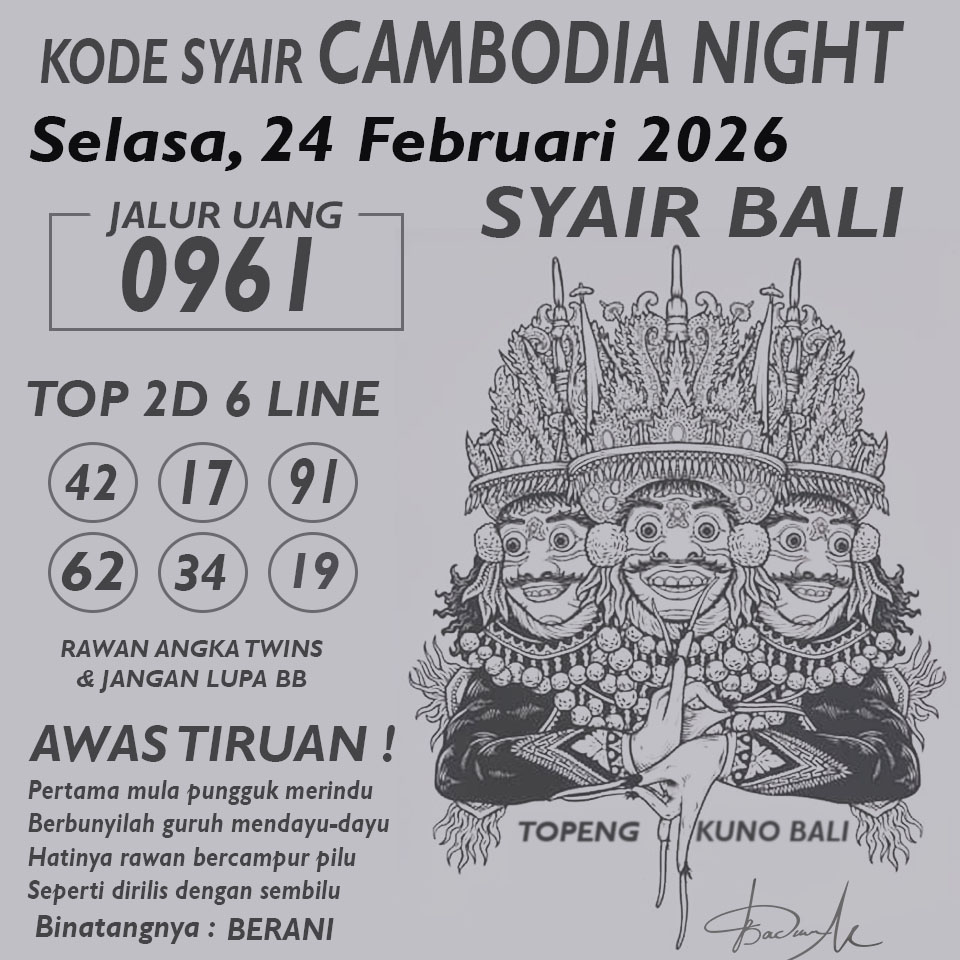 KODE SYAIR CAMBODIA NIGHT
Selasa, 24 Februari 2026
SYAIR BALI
JALUR UANG
0961
TOP 2D 6 LINE
42 17 91
62 34 19
RAWAN ANGKA TWINS
& JANGAN LUPA BB
AWAS TIRUAN !
Pertama mula pungguk merindu
Berbunyilah guruh mendayu-dayu
Hatinya rawan bercampur pilu
Seperti dirilis dengan sembilu
Binatangnya : BERANI
TOPENG KUNO BALI